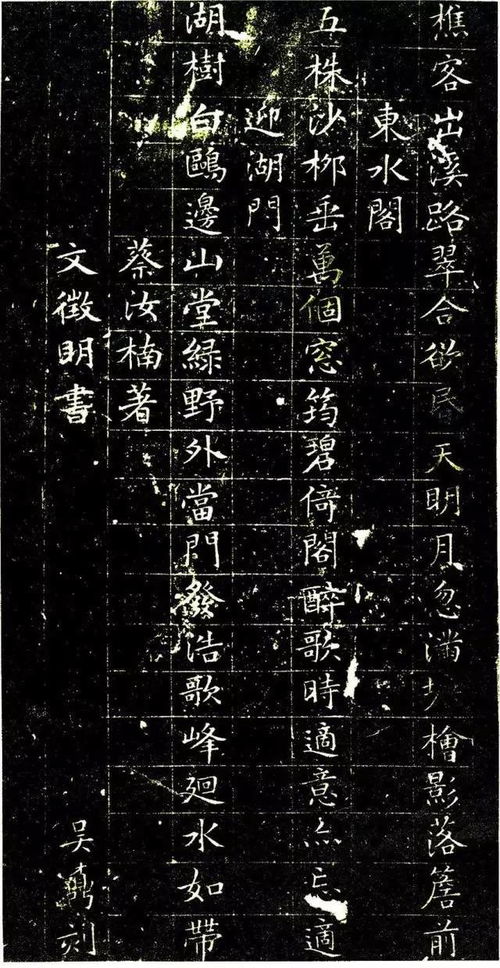 樵客出溪路翠合欲昏天明月忽滿地檜影落簷前
東水閣
五株沙柳垂萬個窓筠碧倚閣醉歌時適意亦忘適
迎湖門
湖樹白鷗邊山堂綠野外當門發浩歌峰廻水如帶
蔡汝楠著
文徵明書
吳鼒刻